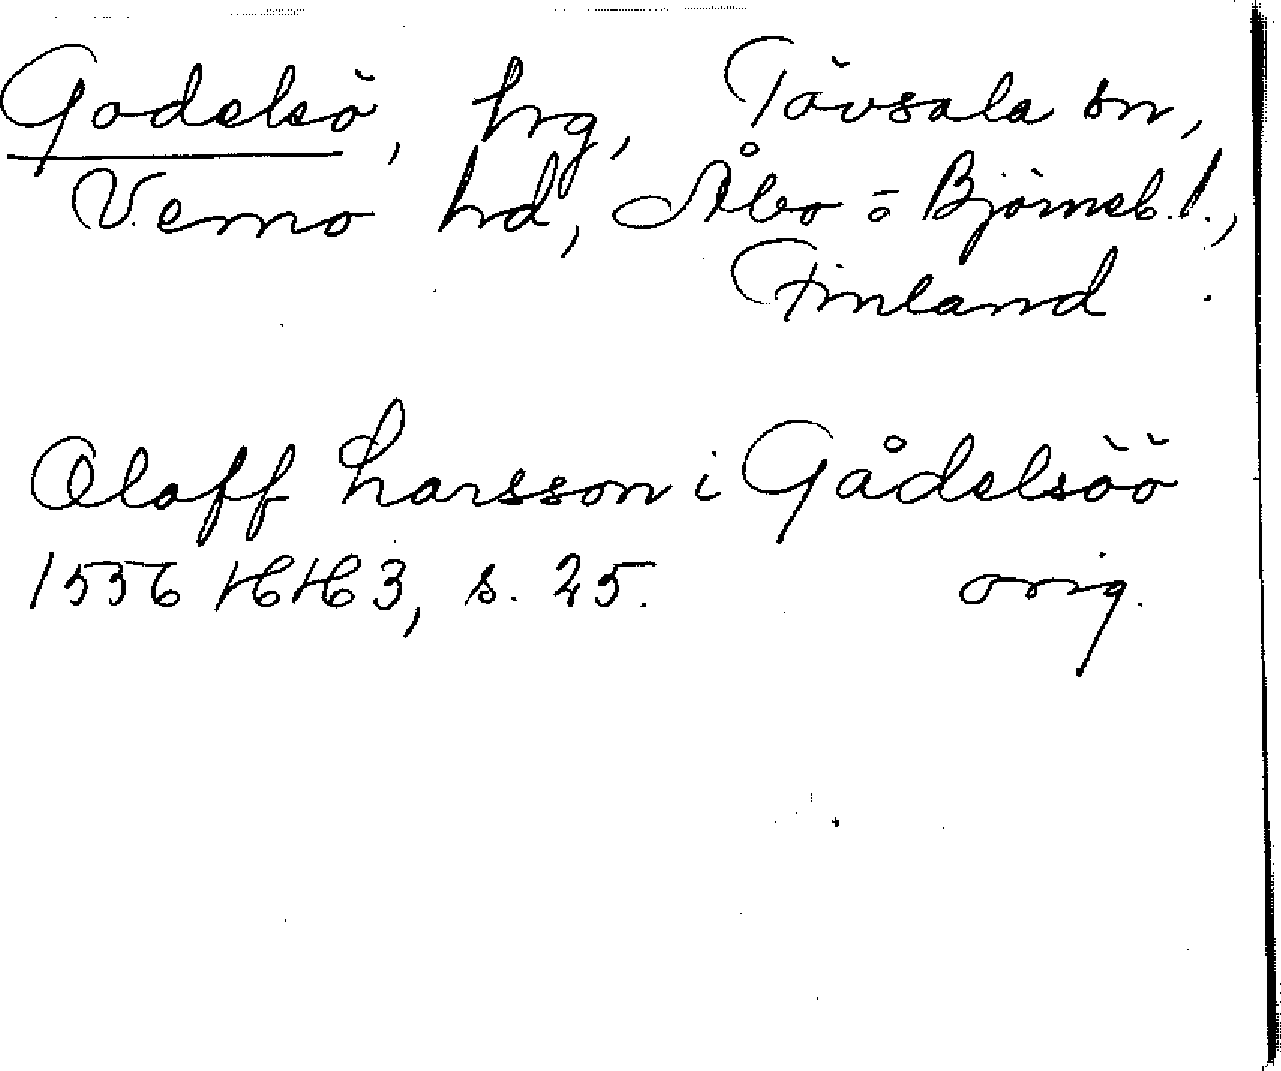 Godelsö, hrg, Tövsala sn,
Vemo hd, Åbo = Björneb. l.,
Finland
Oloff Larsson i Gådelsöö
1556 3, s. 25. orig.